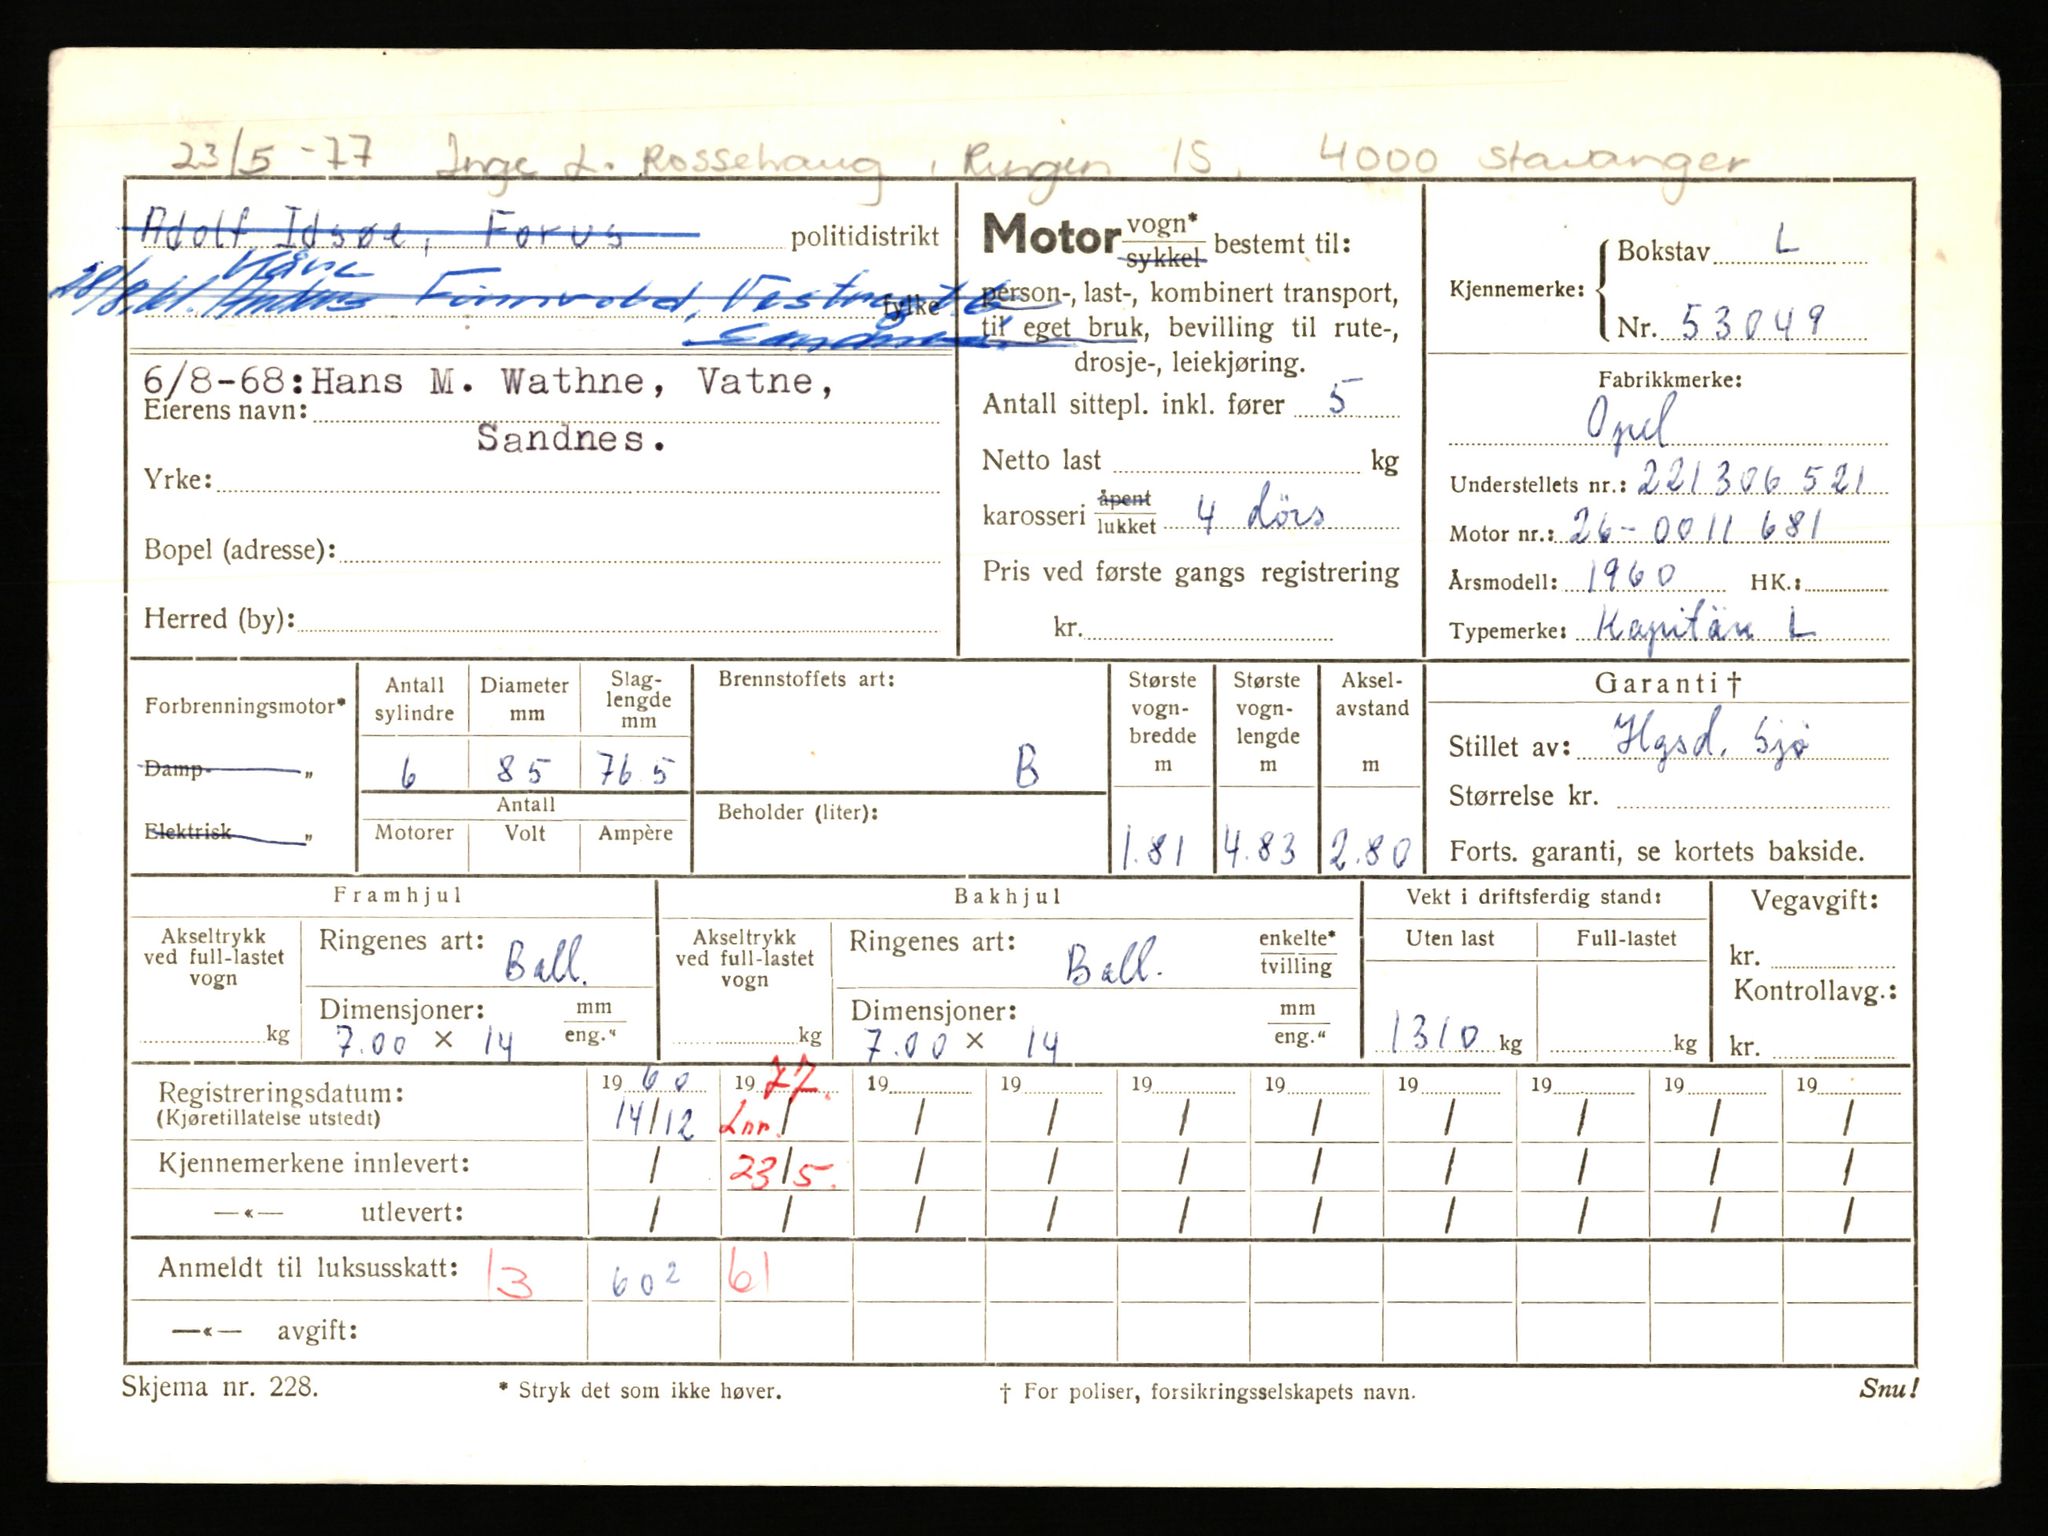 23/5-77 Inge L. Rossehaug, Ringen 15, 4000 Stavanger
Adolf Idsøe, Forus politidistrikt
Kåre
Finnvold, Vestre fylke
Sandnes
6/8-68: Hans M. Wathne, Vatne,
Eierens navn:
Sandnes.
Yrke:
Bopel (adresse):
Herred (by):
Motor vogn* sykkel bestemt til:
person-, last-, kombinert transport,
til eget bruk, bevilling til rute-,
drosje-, leiekjøring.
Antall sittepl. inkl. fører 5
Netto last kg
karosseri åpent lukket 4 dörs
Pris ved første gangs registrering
kr.
Kjennemerke: Bokstav L
Nr. 53049
Fabrikkmerke:
Opel
Understellets nr.: 221306521
Motor nr.: 26-0011681
Årsmodell: 1960 HK.:
Typemerke: Kapitän L
Forbrenningsmotor*
Damp- „
Elektrisk „
Antall sylindre Diameter mm Slag-lengde mm
6 85 76.5
Antall
Motorer Volt Ampère
Brennstoffets art:
B
Beholder (liter):
Største vogn-bredde m Største vogn-lengde m Aksel-avstand m
1.81 4.83 2.80
Garanti †
Stillet av: Hgsd. Sjø
Størrelse kr.
Forts. garanti, se kortets bakside.
Framhjul
Akseltrykk ved full-lastet vogn kg
Ringenes art: Ball.
Dimensjoner: mm eng.“
7.00 × 14
Bakhjul
Akseltrykk ved full-lastet vogn kg
Ringenes art: Ball. enkelte* tvilling
Dimensjoner: mm eng.“
7.00 × 14
Vekt i driftsferdig stand:
Uten last Full-lastet
1310 kg kg
Vegavgift:
kr.
Kontrollavg.:
kr.
Registreringsdatum: 1960 1977. 19 19 19 19 19 19 19 19
(Kjøretillatelse utstedt) 14/12 Lnr. / / / / / / / / /
Kjennemerkene innlevert: / 23/5. / / / / / / / /
—«— utlevert: / / / / / / / / / /
Anmeldt til luksusskatt: 13 602 61
—«— avgift:
Skjema nr. 228. * Stryk det som ikke høver. † For poliser, forsikringsselskapets navn. Snu!